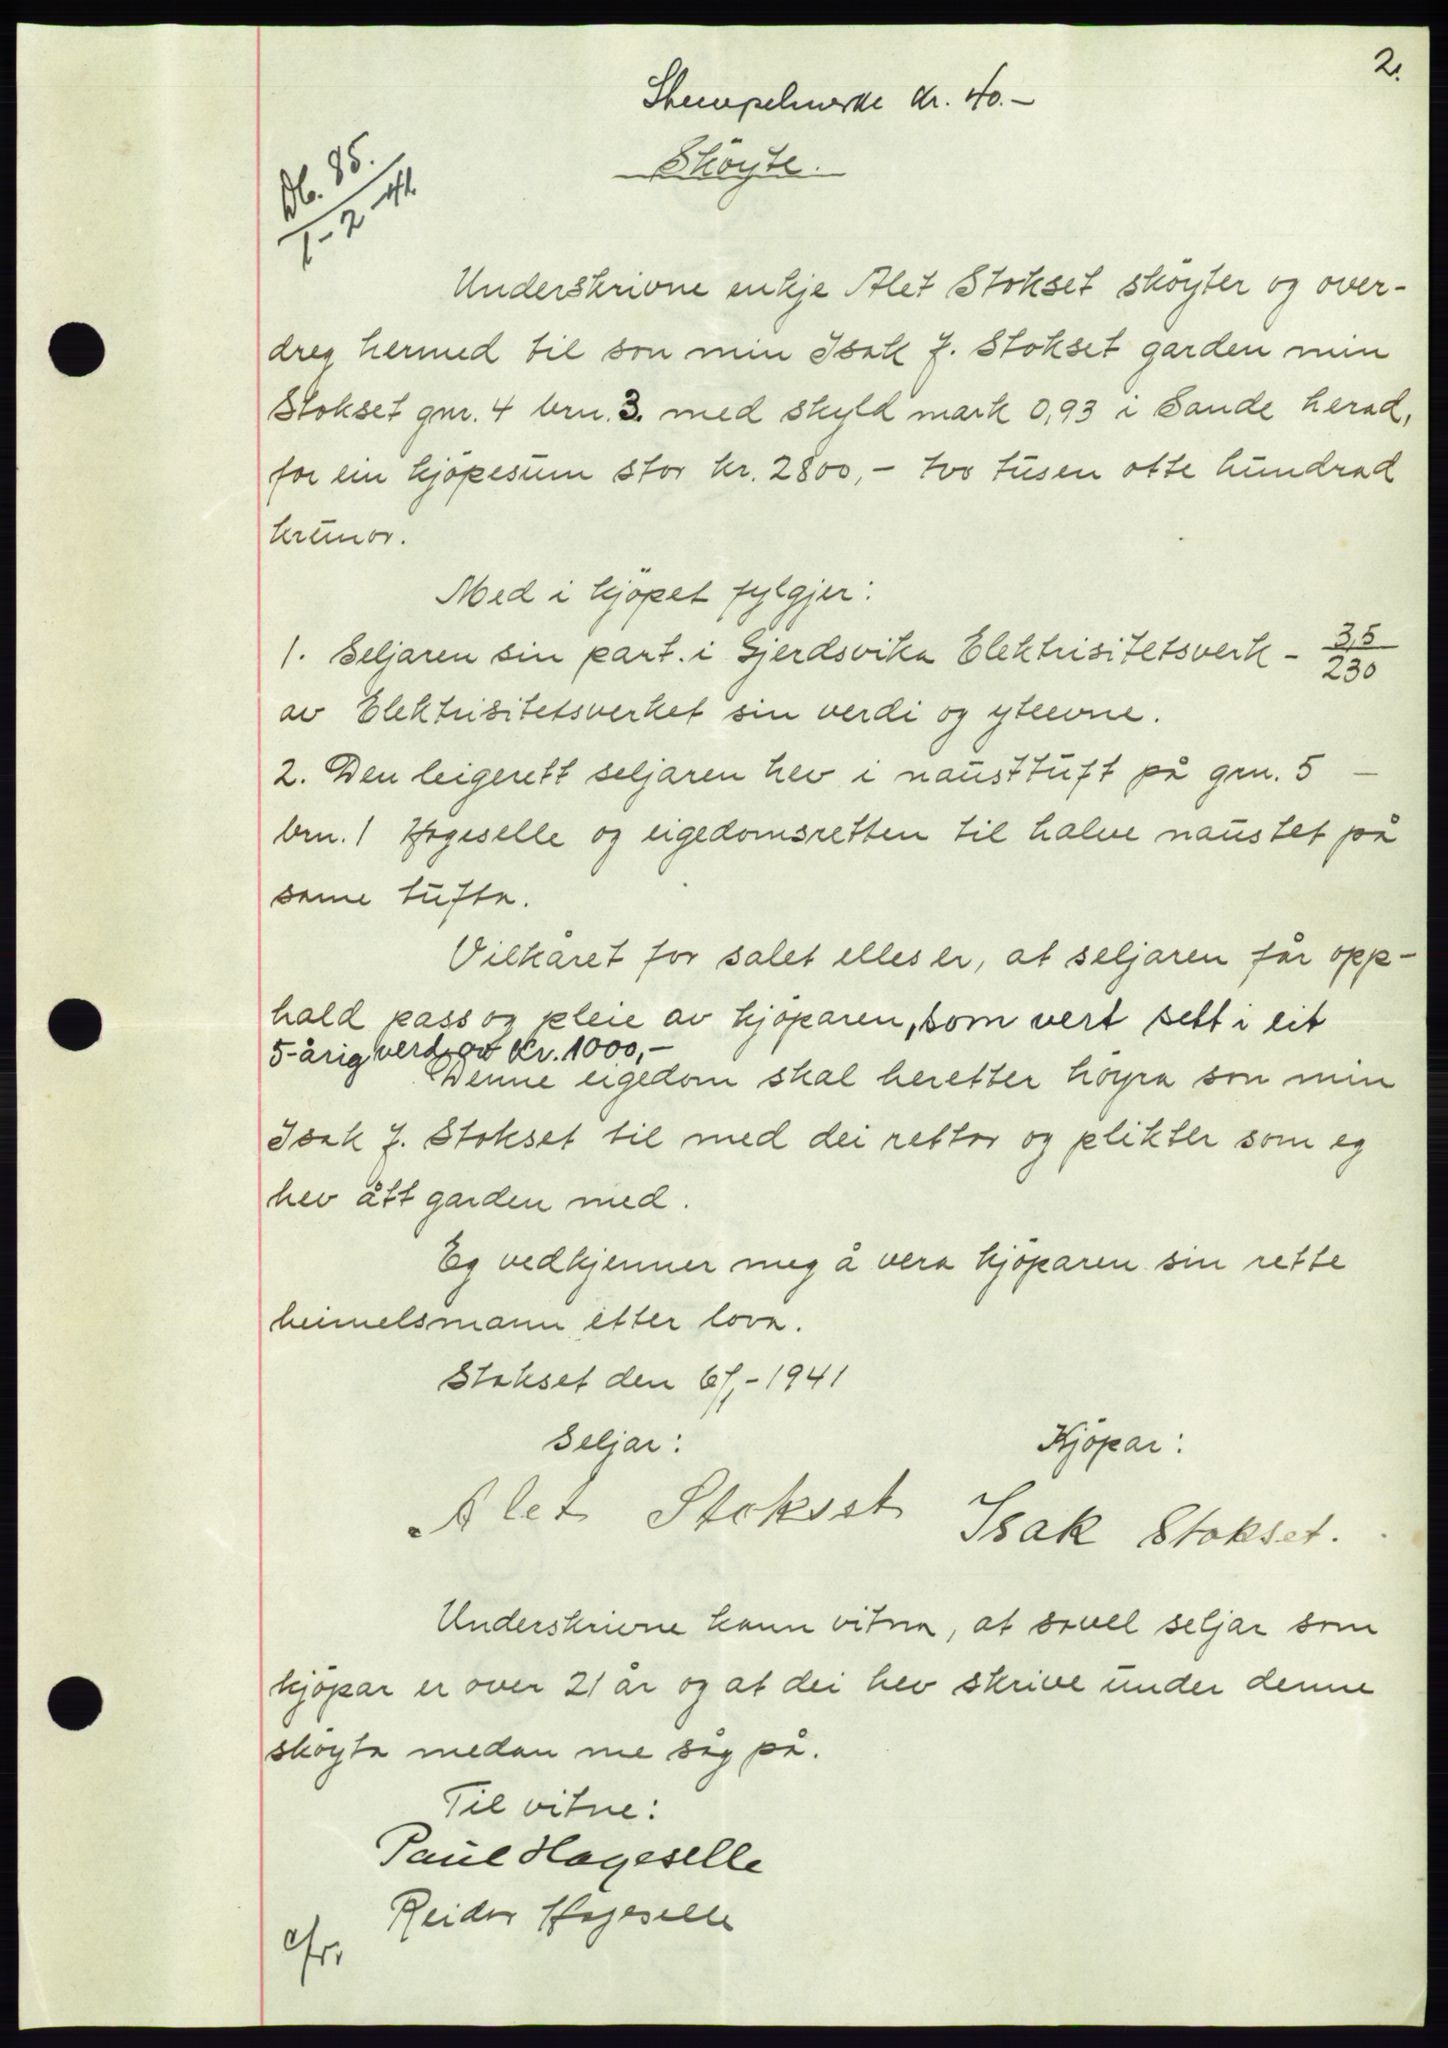 2.
Stempelmerke kr. 40.-
Sköyte.
Db. 85.
1-2-41.
Underskrivne enkje Alet Stokset sköyter og over-
dreg hermed til son min Isak J. Stokset garden min
Stokset gnr. 4 brn. 3. med skyld mark 0,93 i Sande herad,
for ein kjöpesum stor kr. 2800,- tvo tusen otte hundrad
krunor.
Med i kjöpet fylgjer:
1. Seljaren sin part. i Gjerdsvika Elektrisitetsverk - 3,5/230
av Elektrisitetsverket sin verdi og yteevne.
2. Den leigerett seljaren hev i nausttuft på grn. 5 -
brn. 1 Hageselle og eigedomsretten til halve naustet på
same tufta.
Vilkåret for salet elles er, at seljaren får opp-
hald pass og pleie av kjöparen, som vert sett i eit
5-årig verd av kr. 1000,-
Denne eigedom skal heretter höyra son min
Isak J. Stokset til med dei rettar og plikter som eg
hev ått garden med.
Eg vedkjenner meg å vera kjöparen sin rette
heimelsmann etter lova.
Stokset den 6/1-1941
Seljar:
Kjöpar:
Alet Stokset
Isak Stokset.
Underskrivne kann vitna, at såvel seljar som
kjöpar er over 21 år og at dei hev skrive under denne
sköyta medan me såg på.
Til vitne:
Paul Hageselle
Reidar Hageselle